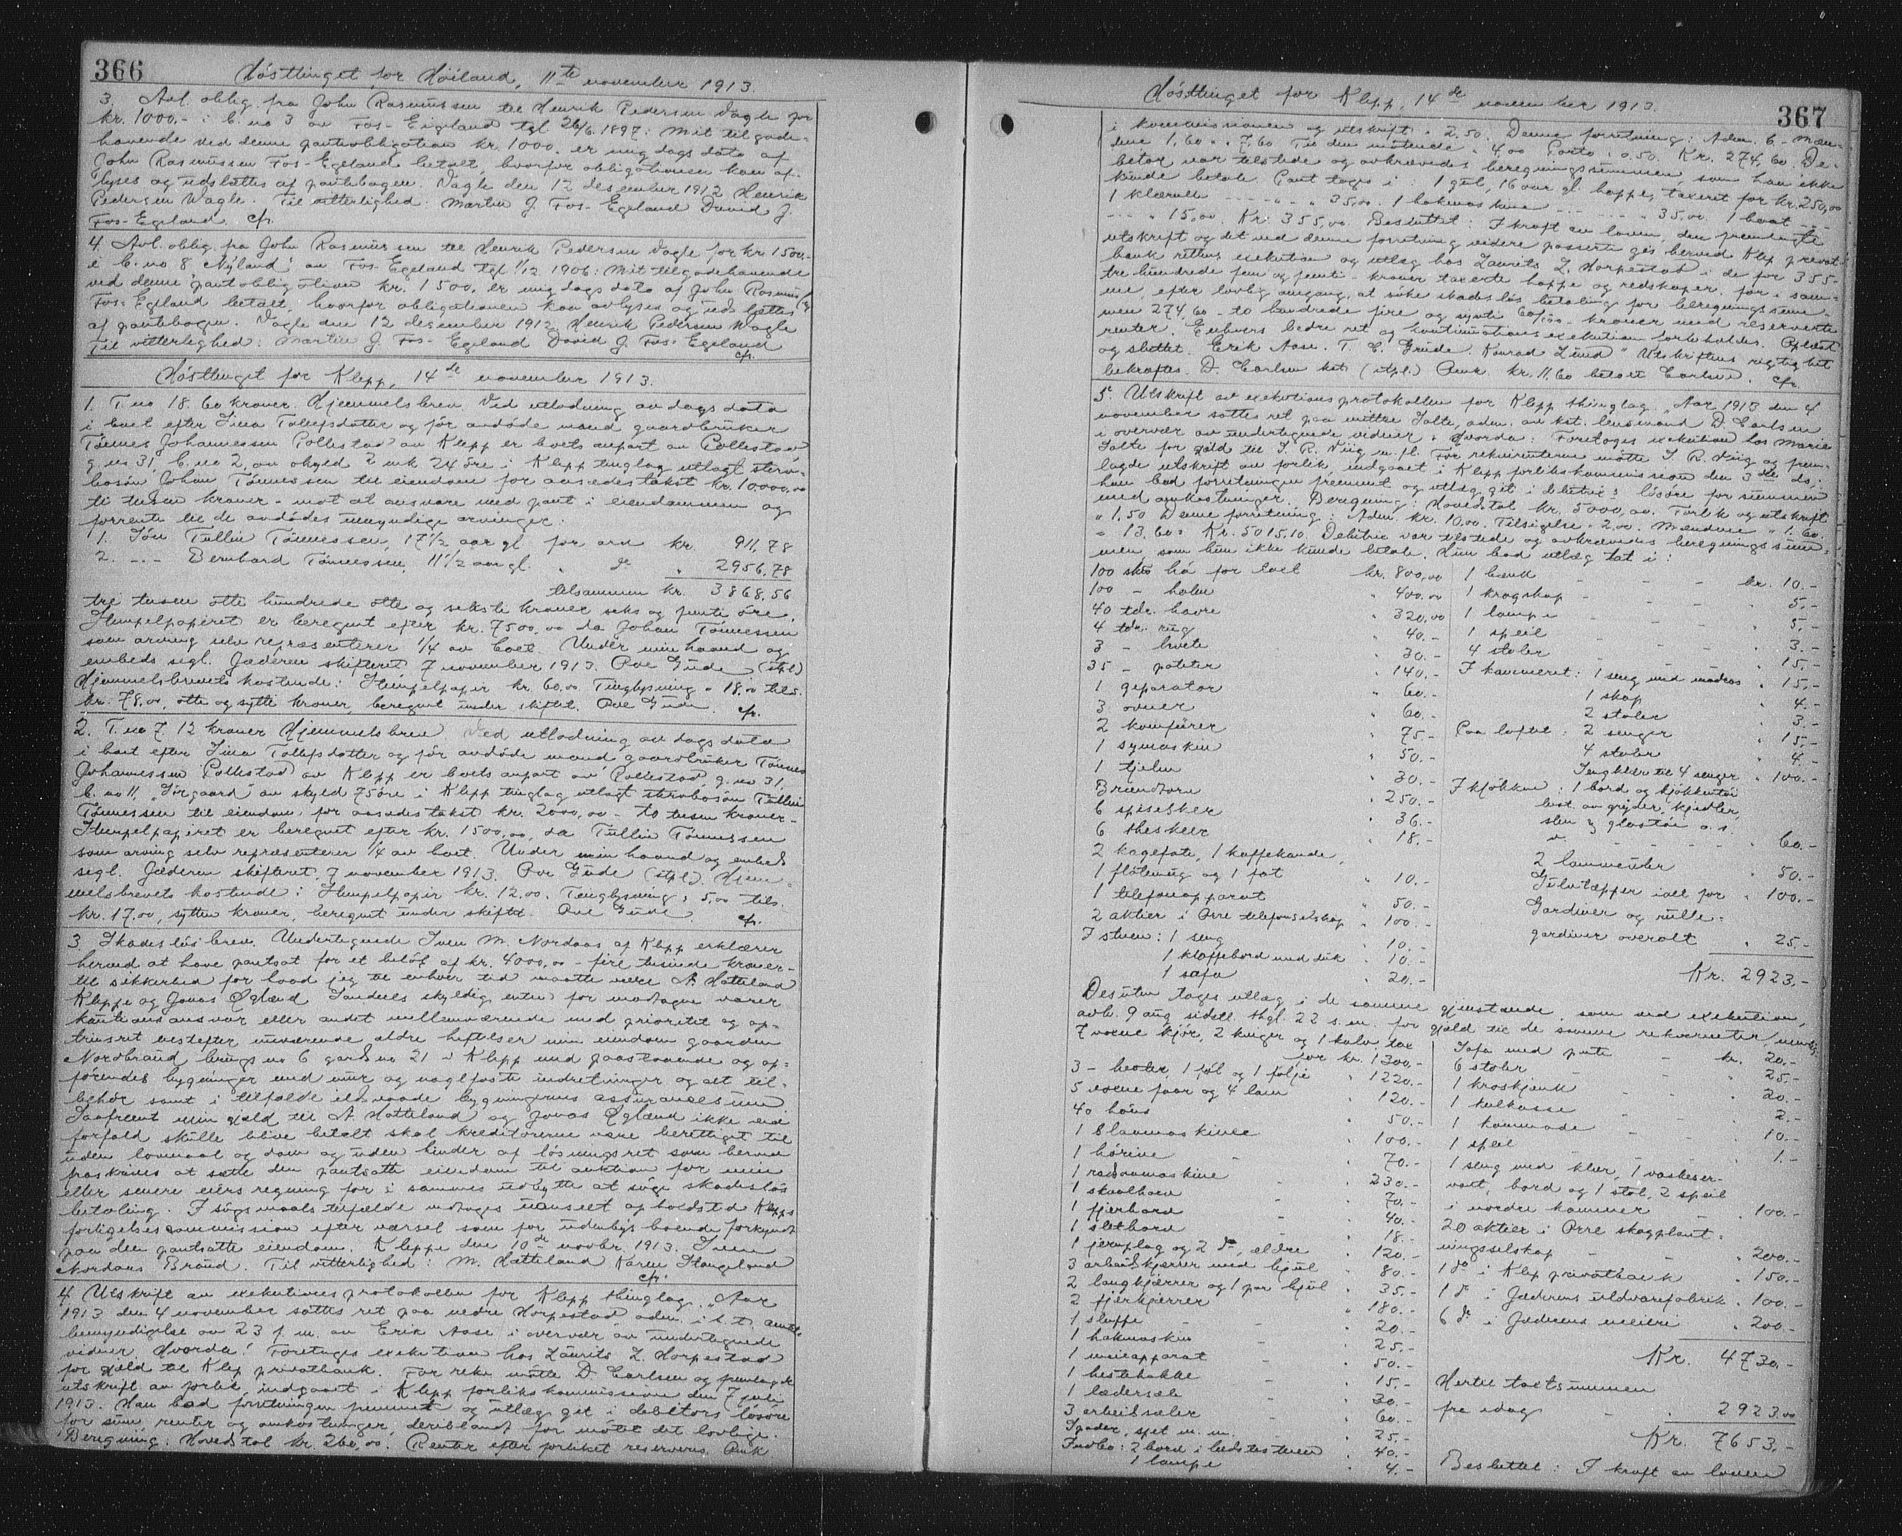 366
Hösttinget for Höiland, 11te november 1913.
3. Avl. oblig. fra John Rasmussen til Henrik Pedersen Vagle for
kr. 1000.- i b. no 3 av Fos-Eigeland tgl 26/6 1897: Mit tilgode-
havende ved denne pantobligation kr. 1000. er mig dags dato af
John Rasmussen Fos-Egeland betalt, hvorfor obligationen kan af-
lyses og udslættes af pantebogen. Vagle den 12 desember 1912 Henrik
Pedersen Wagle. Til vitterlighed: Martin J. Fos-Egeland David J.
Fos-Egeland cfr.
4. Avl. oblig. fra John Rasmussen til Henrik Pedersen Vagle for kr 1500.-
i b. no 8 "Nyland" av Fos-Egeland tgl 1/12 1906: Mit tilgodehavende
ved denne pantobligation kr. 1500. er mig dags dato af John Rasmus
Fos-Egeland betalt, hvorfor obligationen kan avlyses og udslættes
af pantebogen. Vagle den 12 desember 1912 Henrik Pedersen Wagle
Til vitterlighed: Martin J. Fos-Egeland David J. Fos-Egeland
cfr.
Hösttinget for Klepp, 14de november 1913.
1. T. no 18. 60 kroner. Hjemmelsbrev. Ved utlodning av dags dato
i boet efter Sina Tollefsdatter og för avdöde mand gaardbruker
Tönnes Johannessen Pollestad av Klepp er boets anpart av Pollestad
g. no 31, b. no 2, av skyld 2 mk 24 öre i Klepp tinglag utlagt sterv-
bosön Johan Tönnessen til eiendom for ansædestakst kr. 10,000,00
ti tusen kroner - mot at ansvare med pant i eiendommen og
forrente til de avdödes umyndige arvinger:
1. Sön Tullin Tönnessen, 17 1/2 aar gl. for arv kr. 911,78
2. -.- Bernhard Tönnessen 11 1/2 aar gl. " do " 2956,78
tilsammen kr. 3868,56
tre tusen otte hundrede otte og sekste kroner seks og femti öre.
Stempelpapiret er beregnet efter kr. 7500,00 da Johan Tönnessen
som arving selv repræsenterer 1/4 av boet. Under min haand og
embeds segl. Jæderen skifteret 7 november 1913. Ove Gude (stpl)
Hjemmelsbrevets kostende: Stempelpapir kr. 60,00 Tinglysning " 18,00 tils.
kr. 78,00, otte og sytti kroner, beregnet under skiftet. Ove Gude. cfr.
2. T. no 7. 12 kroner Hjemmelsbrev. Ved utlodning av dags dato
i boet efter Sina Tollefsdatter og för avdöde mand gaardbruker Tönnes
Johannessen Pollestad av Klepp er boets anpart av Pollestad, g. no 31,
b. no 11, "Sörgaard" av skyld 75 öre i Klepp tinglag utlagt stervbosön Tullin
Tönnessen til eiendom for ansædestakst kr. 2000,00 - to tusen kroner -
Stempelpapiret er beregnet efter kr. 1500,00, da Tullin Tönnessen
som arving selv repræsenterer 1/4 av boet. Under min haand og embeds
segl. Jæderen skifteret 7 november 1913. Ove Gude (stpl). Hjem-
melsbrevets kostende: Stempelpapir kr. 12.00. Tinglysning " 5,00 tils.
kr. 17.00, sytten kroner, beregnet under skiftet. Ove Gude. cfr.
3. Skadeslösbrev. Undertegnede Sven M. Nordaas af Klepp erklærer
herved at have pantsat for et belöb af kr. 4000,00 - fire tusinde kroner -
til sikkerhed for hvad jeg til enhver tid maatte være A Hatteland
Kleppe og Jonas Öglænd Sandnes skyldig, enten for modtagne varer
kautions ansvar eller andet mellemværende med prioritet og op-
trinsret næstefter nuværende ældre heftelser min eiendom gaarden
Nordbraud brugs no 6 gards no 21 i Klepp med paastaaende og op-
förendes bygninger med mur og naglfaste indretninger og alt til-
behör samt i tilfælde ildsvaade bygningens assurancesum
Saafremt min gjæld til A Hatteland og Jonas Öglænd ikke ved
forfald skulle blive betalt skal kreditorerne være berettiget til
uden lovmaal og dom og uden hinder af lösningsret som herved
fraskrives at sætte den pantsatte eiendom til auktion for min
eller senere eiers regning for i sammes udbytte at söge skadeslös
betaling. I sögsmaals tilfælde vedtages uanseet af bosted Klepps
forligelseskommission efter varsel som for udenbys boende forkyndt
paa den pantsatte eiendom. Kleppe den 10de novbr. 1913. Sven
Nordaas Braud. Til vitterlighed: M. Hatteland Karen Stangeland
cfr.
4. Utskrift av exekutionsprotokollen for Klepp thinglag. "Aar
1913 den 4 november sattes ret paa nedre Horpestad adm. i h. t. amtets
bemyndigelse av 23 f. m. av Erik Aase i overvær av undertegnede
vidner. Hvorda! Foretages exekution hos Laurits L. Horpestad
for gjæld til Klep privatbank. For rekv mötte D. Carlsen og fremlagde
utskrift av forlik, indgaaet i Klepp forlikskommission den 7 juli
1913. Han bad forretningen fremmet og utlæg git i debitors lösöre
for sum, renter og omkostninger, deriblandt for mötet det lovlige.
Beregning: Hovedstol kr. 260,00. Renter efter forliket reserveres. Omk.
367
Hösttinget for Klepp, 14de november 1913.
i kommissionen og utskrift " 2.50. Denne forretning: Adm. 6 - Mæn-
dene 1,60 = " 7,60 Til den mötende " 4,00 Porto " 0.50. Kr. 274,60. De-
bitor var tilstede og avkrævedes beregningssummen som han ikke
kunde betale. Pant toges i: 1 gul, 16 aar gl. hoppe, taxeret for kr. 250,00
1 klærulle - - - " - " 35,00. 1 hakmaskine - - - - - " 35,00. 1 baat - -
- - - " 15,00. Kr. 355,00. Besluttet: I kraft av loven, den fremlagte
utskrift og det ved denne forretning videre passerte gis herved Klep privat-
bank rettens exekution og utlæg hos Laurits L. Horpestad i de for 355
tre hundrede fem og femti - kroner taxerte hoppe og redskaper, for i sam-
me, efter lovlig omgang, at söke skadeslös betaling for beregningssum-
men 274,60 - to hundrede fire og sytti 60/100 - kroner med reserverte
renter. Enhvers bedre ret og kontinuationsexekution forbeholdes. Oplæst
og sluttet. Erik Aase. T. E. Grude. Konrad Lund" Utskriftens rigtighet
bekræftes. D. Carlsen kst. (stpl.) Omk. kr. 11,60 betalt Carlsen. cfr.
5. Utskrift av exekutionsprotokollen for Klepp thinglag. "Aar 1913 den 4
november sattes ret paa mittre Salte, adm. av kst. lensmand D. Carlsen
i overvær av undertegnede vidner. Hvorda: Foretoges exekution hos Marie
Salte for gjæld til S. R. Wiig m. fl. For rekvirenterne mötte S. R. Wiig og frem-
lagde utskrift av forlik, indgaaet i Klepp forlikskommission den 3die ds:
han bad forretningen fremmet og utlæg git i debitrix's lösöre for summen
med omkostninger. Beregning: Hovedstol kr. 5000,00. Forlik og utskrift
" 1.50 Denne forretning: Adm. kr. 10,00. Tilsigelse " 2.00. Mændene " 1.60
" 13.60 = Kr. 5015.10. Debitrix var tilstede og avkrævedes beregningssum-
men, som hun ikke kunde betale. Hun bad utlæg tat i:
100 skto hö for ialt kr. 800,00
100 - halm " 400,00
40 tdr. havre " 320,00
4 tdr. rug " 40.-
3 - hvete " 30.-
35 - poteter " 140.-
1 seperator " 60.-
3 ovner " 60.-
2 komfürer " 75.-
1 symaskin " 50.-
1 kjelen " 30.-
Brændtorv " 250.-
6 spiseskeer " 36.-
6 theskeer " 18.-
2 kagefate, 1 kaffekande,
1 flötemug og 1 fat " 10.-
1 telefonapparat " 50.-
2 aktier i Orre telefonselskap " 100.-
I stuen: 1 seng " 10.-
1 klaffebord med duk " 10.-
1 sofa " 20.-
1 bænk - - - kr. 10.-
1 krogskap - - - " 5.-
1 lampe - - - " 5.-
1 speil " 3.-
4 stoler " 15.-
I kammeret: 1 seng med madras " 15.-
1 skap " 4.-
2 stoler " 3.-
Paa loftet: 2 senger " 15.-
4 stoler " 4.-
Sengklær til 4 senger " 100.-
I kjökken: 1 bord og kjökkentöi
best. av gryder, kjedler,
sten og glastöi o. s.
v. - - - - " 60.-
2 lommeuhr " 50.-
Gulvtæpper ialt for " 100.-
Gardiner og rulle-
gardiner overalt " 25.-
Kr. 2923.-
Desuten tages utlæg i de samme gjenstande, som ved exekution,
avh. 9 aug. sidstl. thgl. 22 s. m. for gjæld til de samme rekvirenter, nemlig:
7 voxne kjör, 2 kviger og 1 kalv, tax
for kr. 1300.-
3 - hester 1 föl og 1 følje " 1220.-
5 voxne faar og 4 lam " 120.-
40 höns " 50.-
1 slaamaskine " 100.-
1 hörive - " 70.-
1 radsaamaskine - " 230.-
1 skaalharv " 70.-
1 fjerharv - " 40.-
1 sletharv - " 18.-
1 jernplog og 2 do, eldre " 120.-
3 arbeidskjærrer med hjul " 80.-
2 langkjærrer og 1 par hjul " 35.-
2 fjerkjærrer " 180.-
1 sluffe - - " 20.-
1 hakmaskin - " 25.-
1 meieapparat - " 50.-
1 hestehakke - " 15.-
1 lædersæle - " 30.-
3 arbeidsæler - " 60.-
Spader, spet m. m. - " 25.-
Indbo: 2 bord i bedstestuen " 40.-
1 lampe " 4.-
Sofa med pute - kr. 20.-
6 stoler - - " 25.-
1 kroskjenk " 20.-
1 kulkasse - - " 2.-
1 kommode - - " 10.-
1 speil - - " 1.-
1 seng med klær, 1 vaskeser-
vant, bord og 1 stol, 2 speil
i nordre kammer - " 100.-
20 aktier i Orre skogplant-
ningsselskap - - " 200.-
1 do i Klep privatbank " 150.-
1 do i Jæderens uldvarefabrik " 100.-
6 do i Jæderens meieri " 200.-
Kr. 4730.-
Hertil taxtsummen
fra idag - " 2923.00
Kr. 7653.-
Besluttet: I kraft av loven